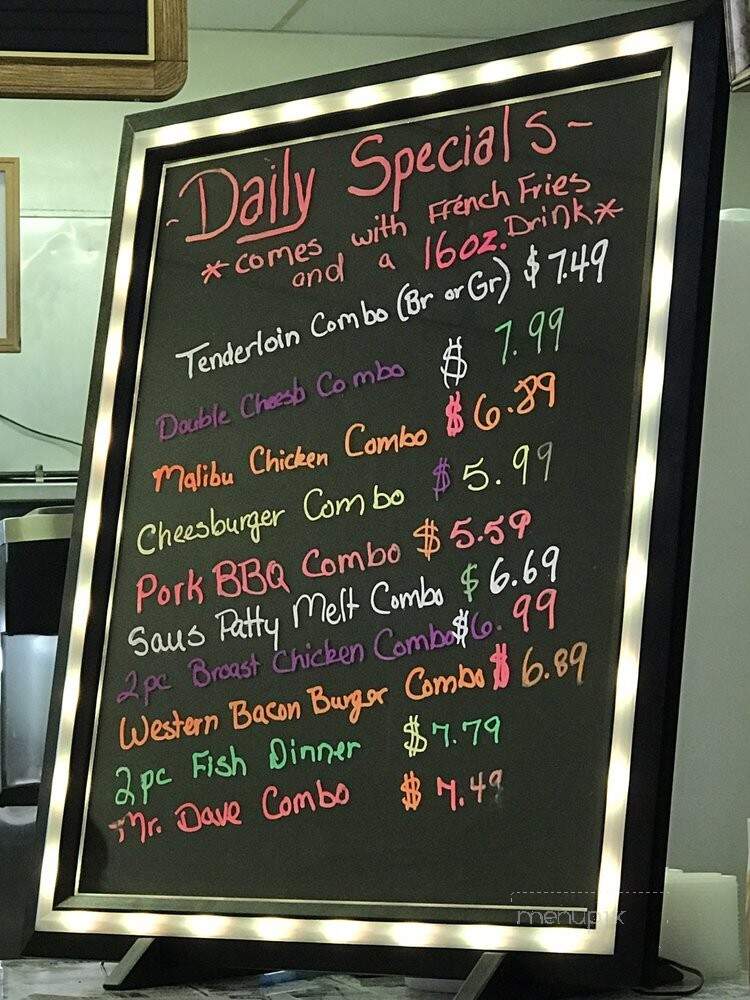 ~Daily Specials~
*comes with French Fries
and a 16oz. Drink*
Tenderloin Combo (Br or Gr) $7.49
Double Cheesb Combo $ 7.99
Malibu Chicken Combo $6.89
Cheesburger Combo $5.99
Pork BBQ Combo $5.59
Saus Patty Melt Combo $6.69
2pc Broast Chicken Combo $6.99
Western Bacon Burger Combo $6.89
2pc Fish Dinner $7.79
Mr. Dave Combo $7.49
menupix